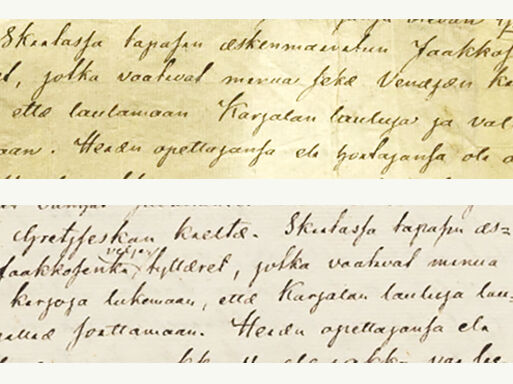 Skiitassa tapasin äskenmainitun Jaakkos
et, jotka vaativat minua sekä Venäjän
että laulamaan Karjalan lauluja ja val
aan. Heidän opettajansa eli hoitajansa oli
Gretsjeskan kieltä. Skiitassa tapasin äs=
Jaakkosenka tyttäret, jotka vaativat minua
kirjoja lukemaan, että Karjalan lauluja lau=
soittamaan. Heidän opettajansa eli